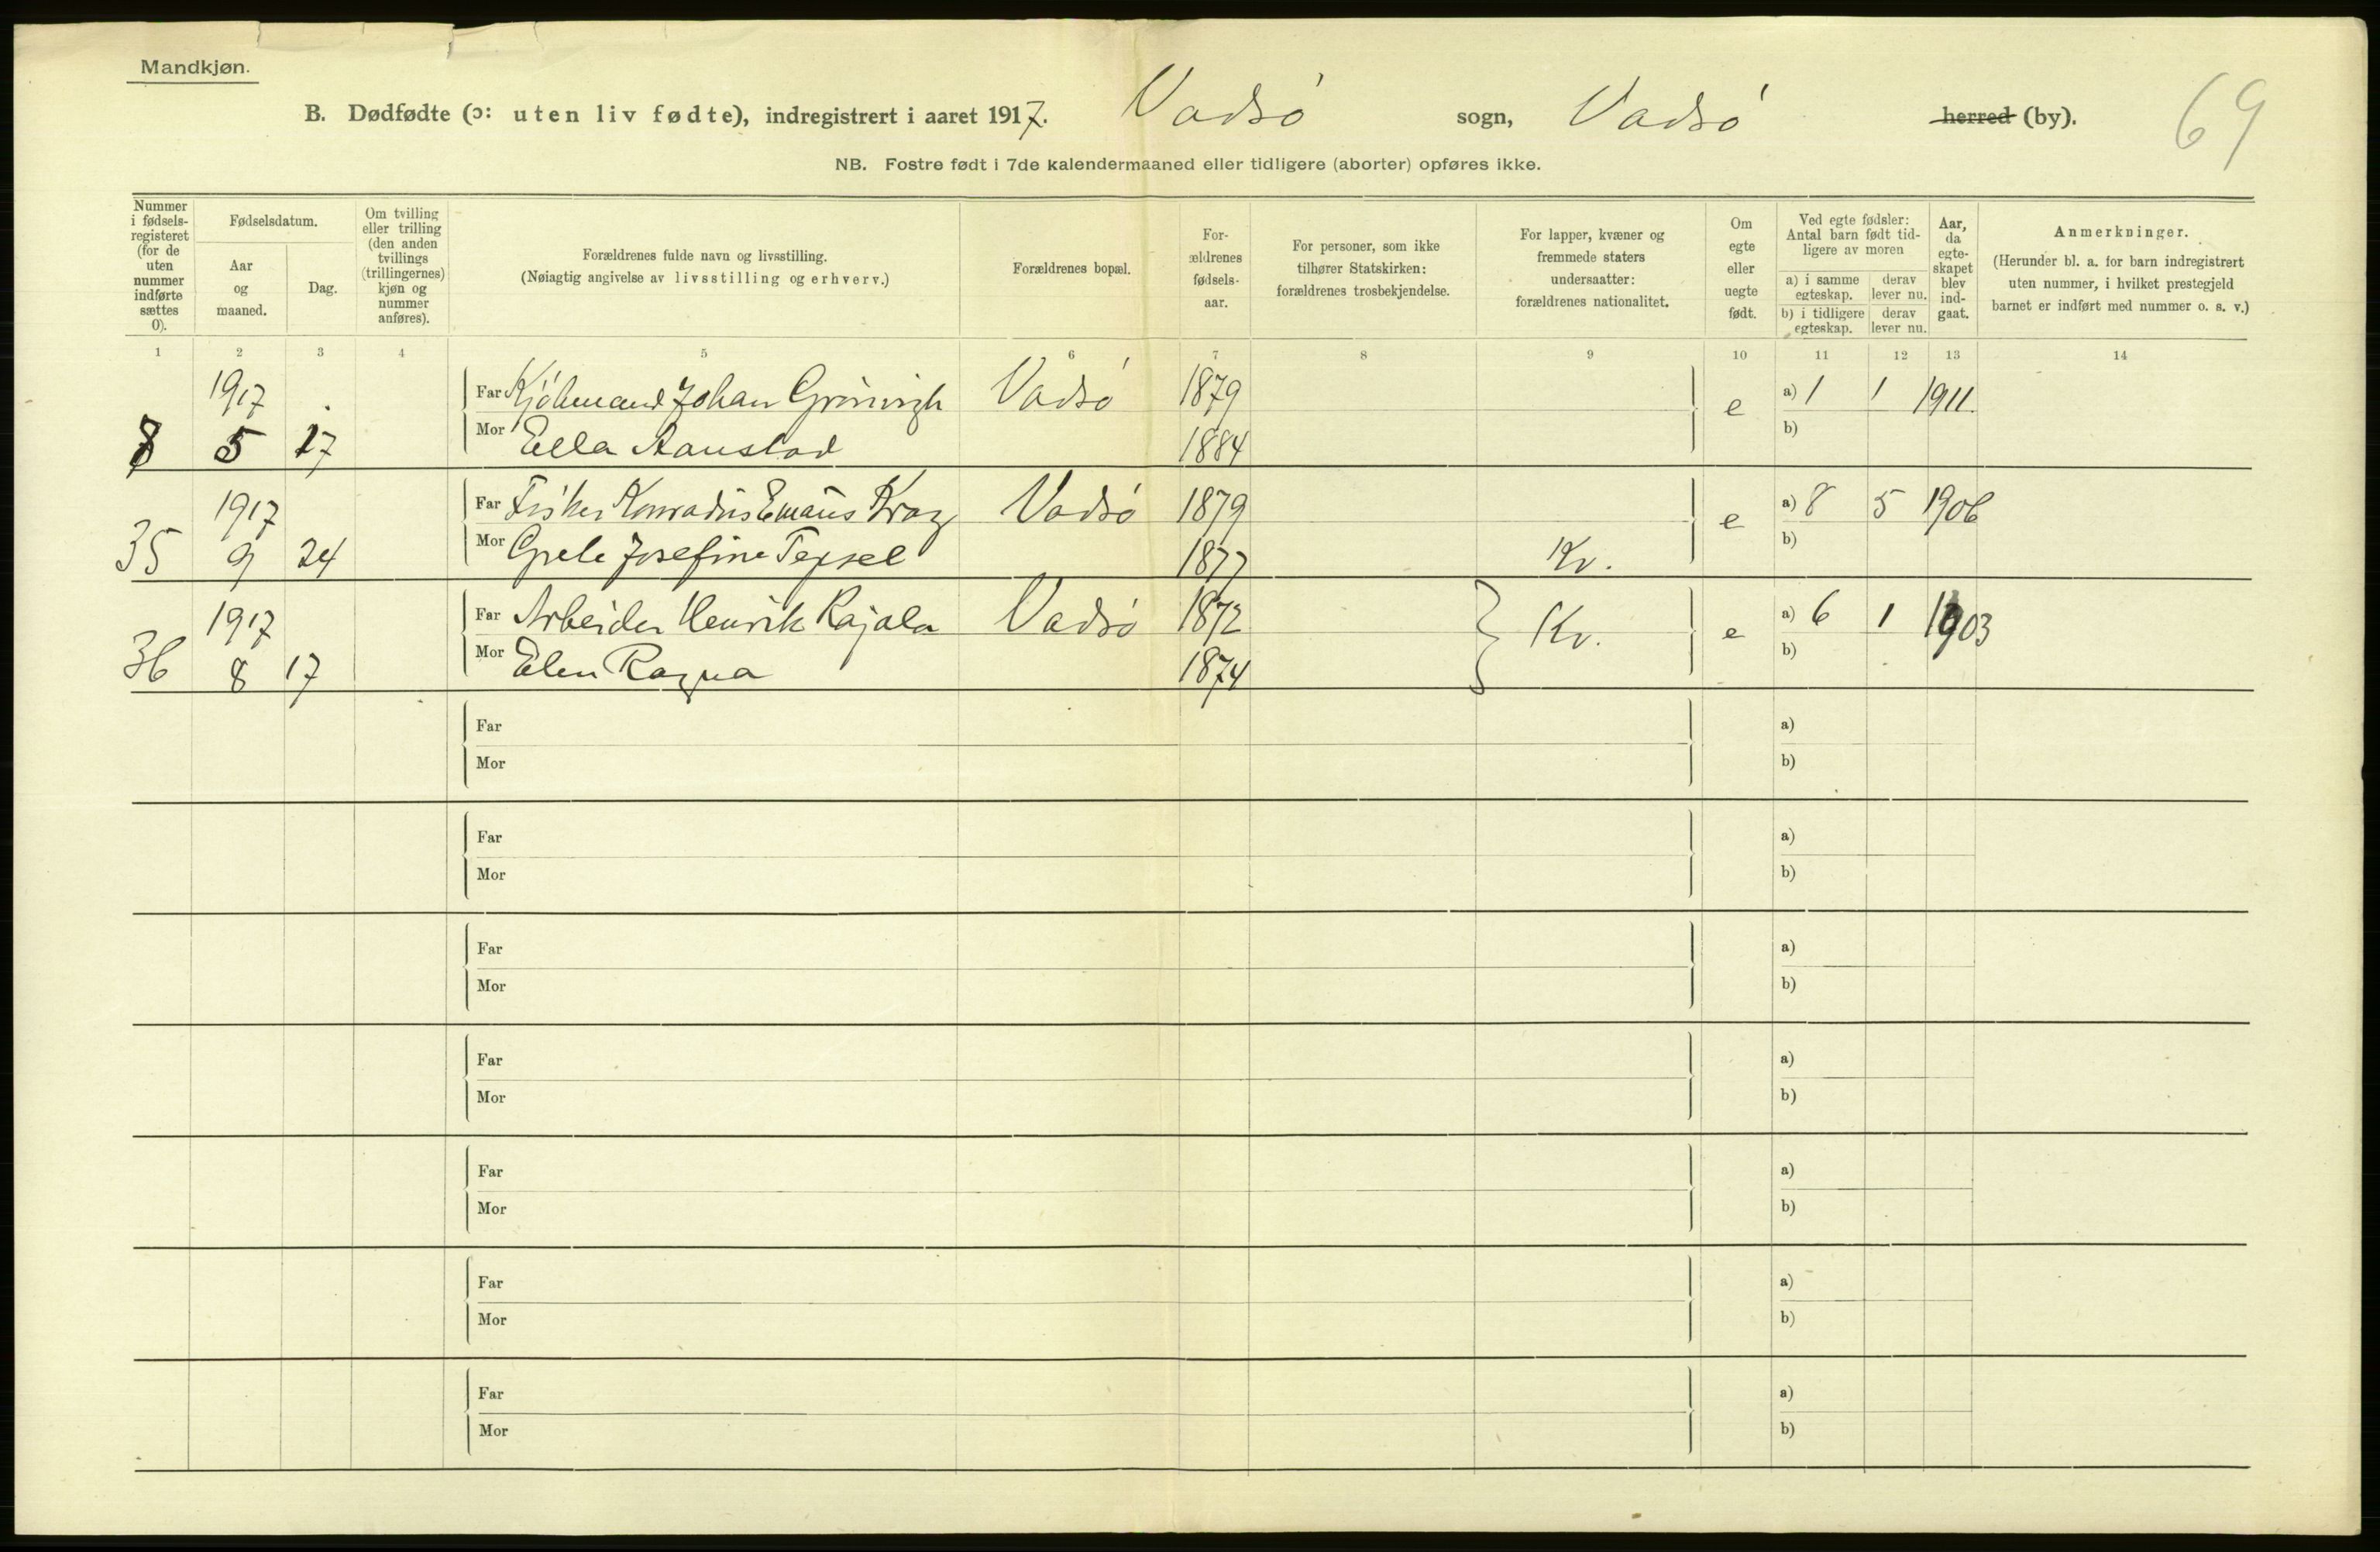 Mandkjøn.
B. Dødfødte (ɔ: uten liv fødte), indregistrert i aaret 1917. Vadsö sogn, Vadsö herred (by).
69
NB. Fostre født i 7de kalendermaaned eller tidligere (aborter) opføres ikke.
Nummer i fødsels-registeret (for de uten nummer indførte sættes 0).
Fødselsdatum.
Aar og maaned.
Dag.
Om tvilling eller trilling (den anden tvillings (trillingernes) kjøn og nummer anføres).
Forældrenes fulde navn og livsstilling.
(Nøiagtig angivelse av livsstilling og erhverv.)
Forældrenes bopæl.
For-ældrenes fødsels-aar.
For personer, som ikke tilhører Statskirken: forældrenes trosbekjendelse.
For lapper, kvæner og fremmede staters undersaatter: forældrenes nationalitet.
Om egte eller uegte født.
Ved egte fødsler: Antal barn født tid-ligere av moren
a) i samme egteskap.
derav lever nu.
b) i tidligere egteskap.
derav lever nu.
Aar, da egte-skapet blev ind-gaat.
Anmerkninger.
(Herunder bl. a. for barn indregistrert uten nummer, i hvilket prestegjeld barnet er indført med nummer o. s. v.)
1 2 3 4 5 6 7 8 9 10 11 12 13 14
1917 Far Johan Vadsö 1879 e a) 1 1 1911
8 5 17 Mor Ella Aanstad 1884 b)
1917 Far Fisker Konradus Emäus Vadsö 1879 e a) 8 5 1906
35 9 24 Mor Grete Josefine 1877 Kv. b)
1917 Far Arbeider Henrik Rajala Vadsö 1872 Kv. e a) 6 1 1903
36 8 17 Mor Elen Ragna 1874 b)
Far a)
Mor b)
Far a)
Mor b)
Far a)
Mor b)
Far a)
Mor b)
Far a)
Mor b)
Far a)
Mor b)
Far a)
Mor b)